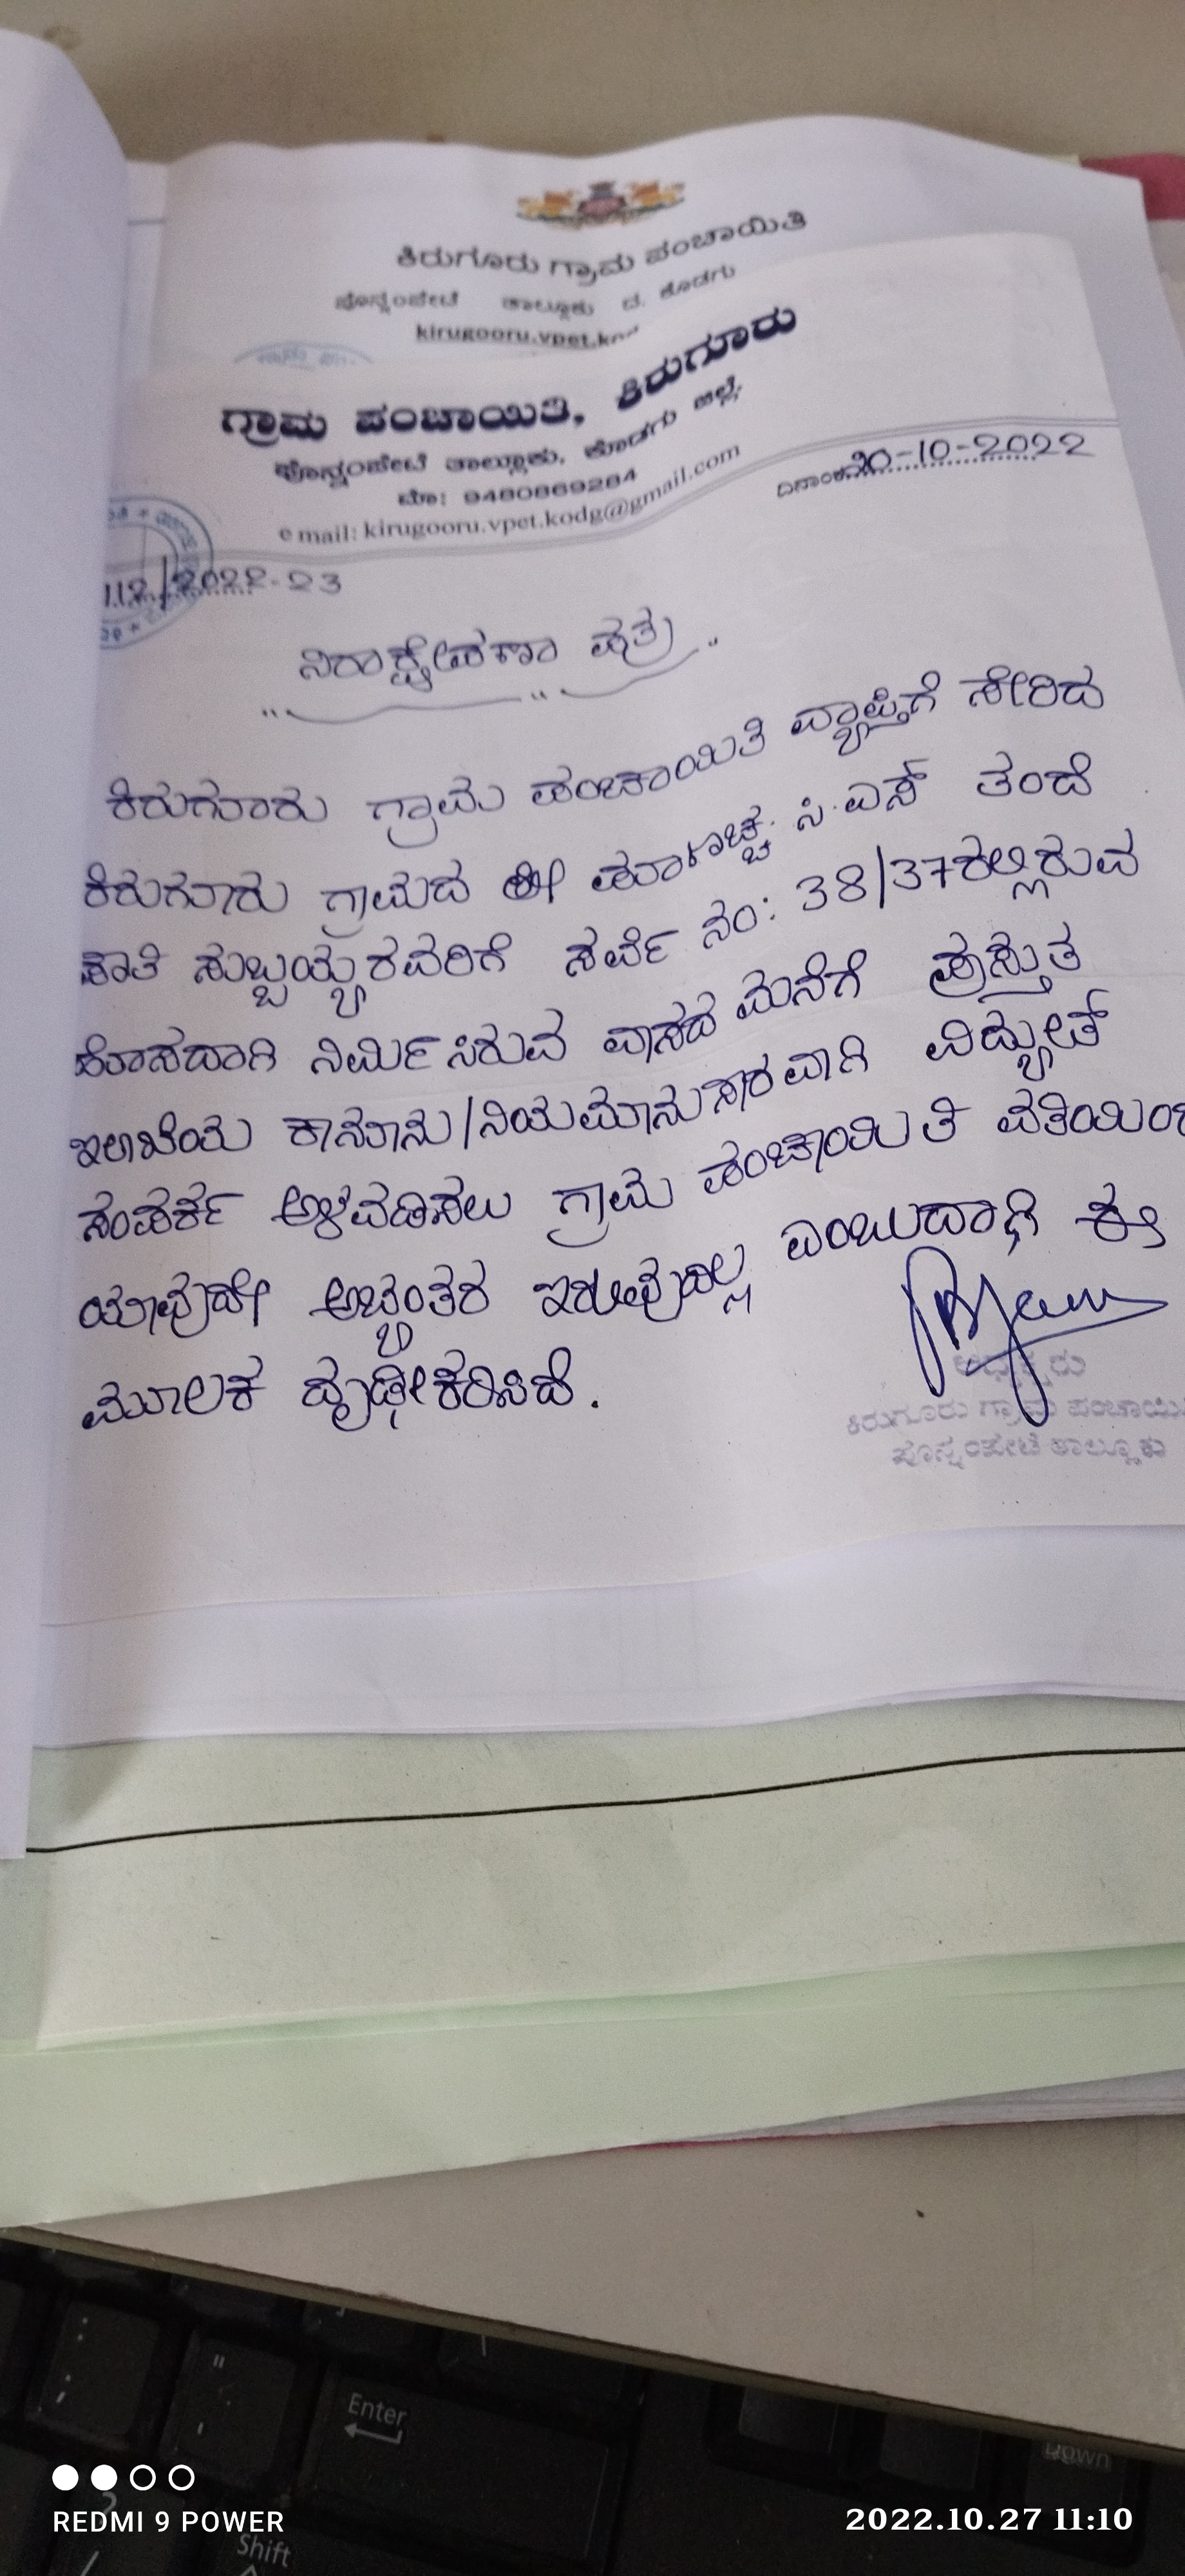 ಕಿರುಗೂರು ಗ್ರಾಮ ಪಂಚಾಯಿತಿ
ಪೊನ್ನಂಪೇಟೆ ತಾಲ್ಲೂಕು ದ. ಕೊಡಗು
kirugooru.vpet.kod
ಗ್ರಾಮ ಪಂಚಾಯಿತಿ, ಕಿರುಗೂರು
ಪೊನ್ನಂಪೇಟೆ ತಾಲ್ಲೂಕು, ಕೊಡಗು ಜಿಲ್ಲೆ.
ಮೊ: 9480869284
e mail: kirugooru.vpet.kodg@gmail.com
ದಿನಾಂಕ 20-10-2022
112/2022-23
ನಿರಾಕ್ಷೇಪಣಾ ಪತ್ರ
ಕಿರುಗೂರು ಗ್ರಾಮ ಪಂಚಾಯಿತಿ ವ್ಯಾಪ್ತಿಗೆ ಸೇರಿದ
ಕಿರುಗೂರು ಗ್ರಾಮದ ಶ್ರೀ ಸಿ.ಎಸ್ ತಂದೆ
ಸುಬ್ಬಯ್ಯರವರಿಗೆ ಸರ್ವೆ ನಂ: 38/37ರಲ್ಲಿರುವ
ಹೊಸದಾಗಿ ನಿರ್ಮಿಸಿರುವ ವಾಸದ ಮನೆಗೆ ಪ್ರಸ್ತುತ
ಇಲಾಖೆಯ ಕಾನೂನು/ನಿಯಮಾನುಸಾರವಾಗಿ ವಿದ್ಯುತ್
ಸಂಪರ್ಕ ಅಳವಡಿಸಲು ಗ್ರಾಮ ಪಂಚಾಯಿತಿ ವತಿಯಿಂದ
ಯಾವುದೇ ಅಭ್ಯಂತರ ಇರುವುದಿಲ್ಲ ಎಂಬುದಾಗಿ ಈ
ಮೂಲಕ ದೃಢೀಕರಿಸಿದೆ.
ಅಧ್ಯಕ್ಷರು
ಕಿರುಗೂರು ಗ್ರಾಮ ಪಂಚಾಯಿ
ಪೊನ್ನಂಪೇಟೆ ತಾಲ್ಲೂಕು
Enter
Down
Shift
REDMI 9 POWER
2022.10.27 11:10